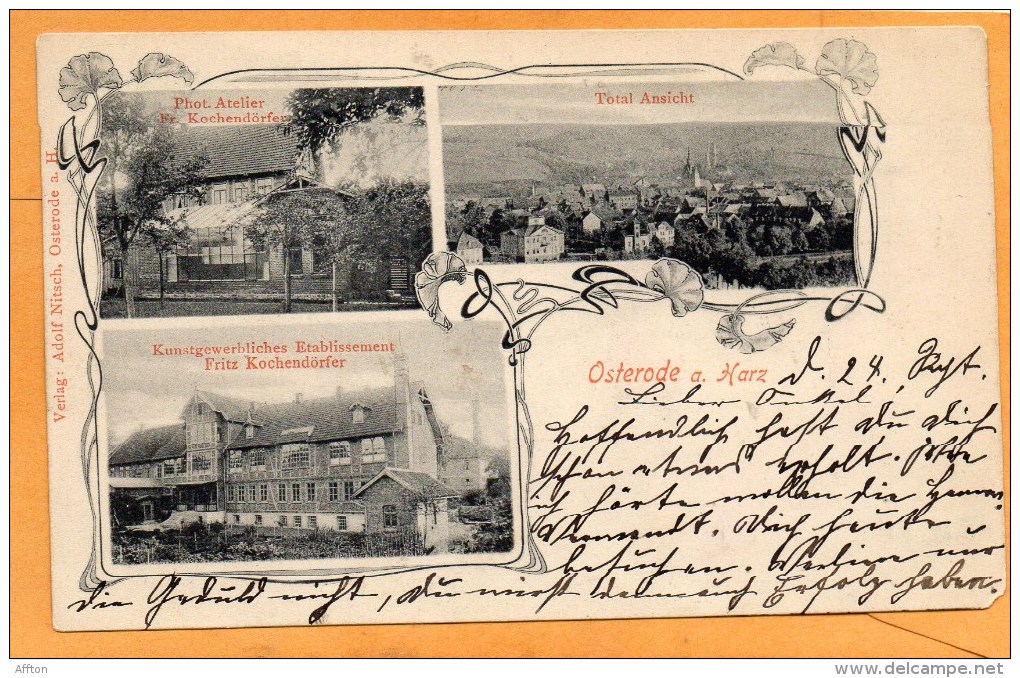 Phot. Atelier
Fr. Kochendörfer
Total Ansicht
Verlag: Adolf Nitsch, Osterode a. H.
Kunstgewerbliches Etablissement
Fritz Kochendörfer
Osterode a. Harz
d. 24. Sept.
Lieber Onkel,
Hoffendlich hast du dich
schon etwas erholt.
ich hörte wollen die Herren
Dich heute
besuchen. nur
die Geduld nicht, Du wirst Erfolg haben.
Affton
www.delcampe.net